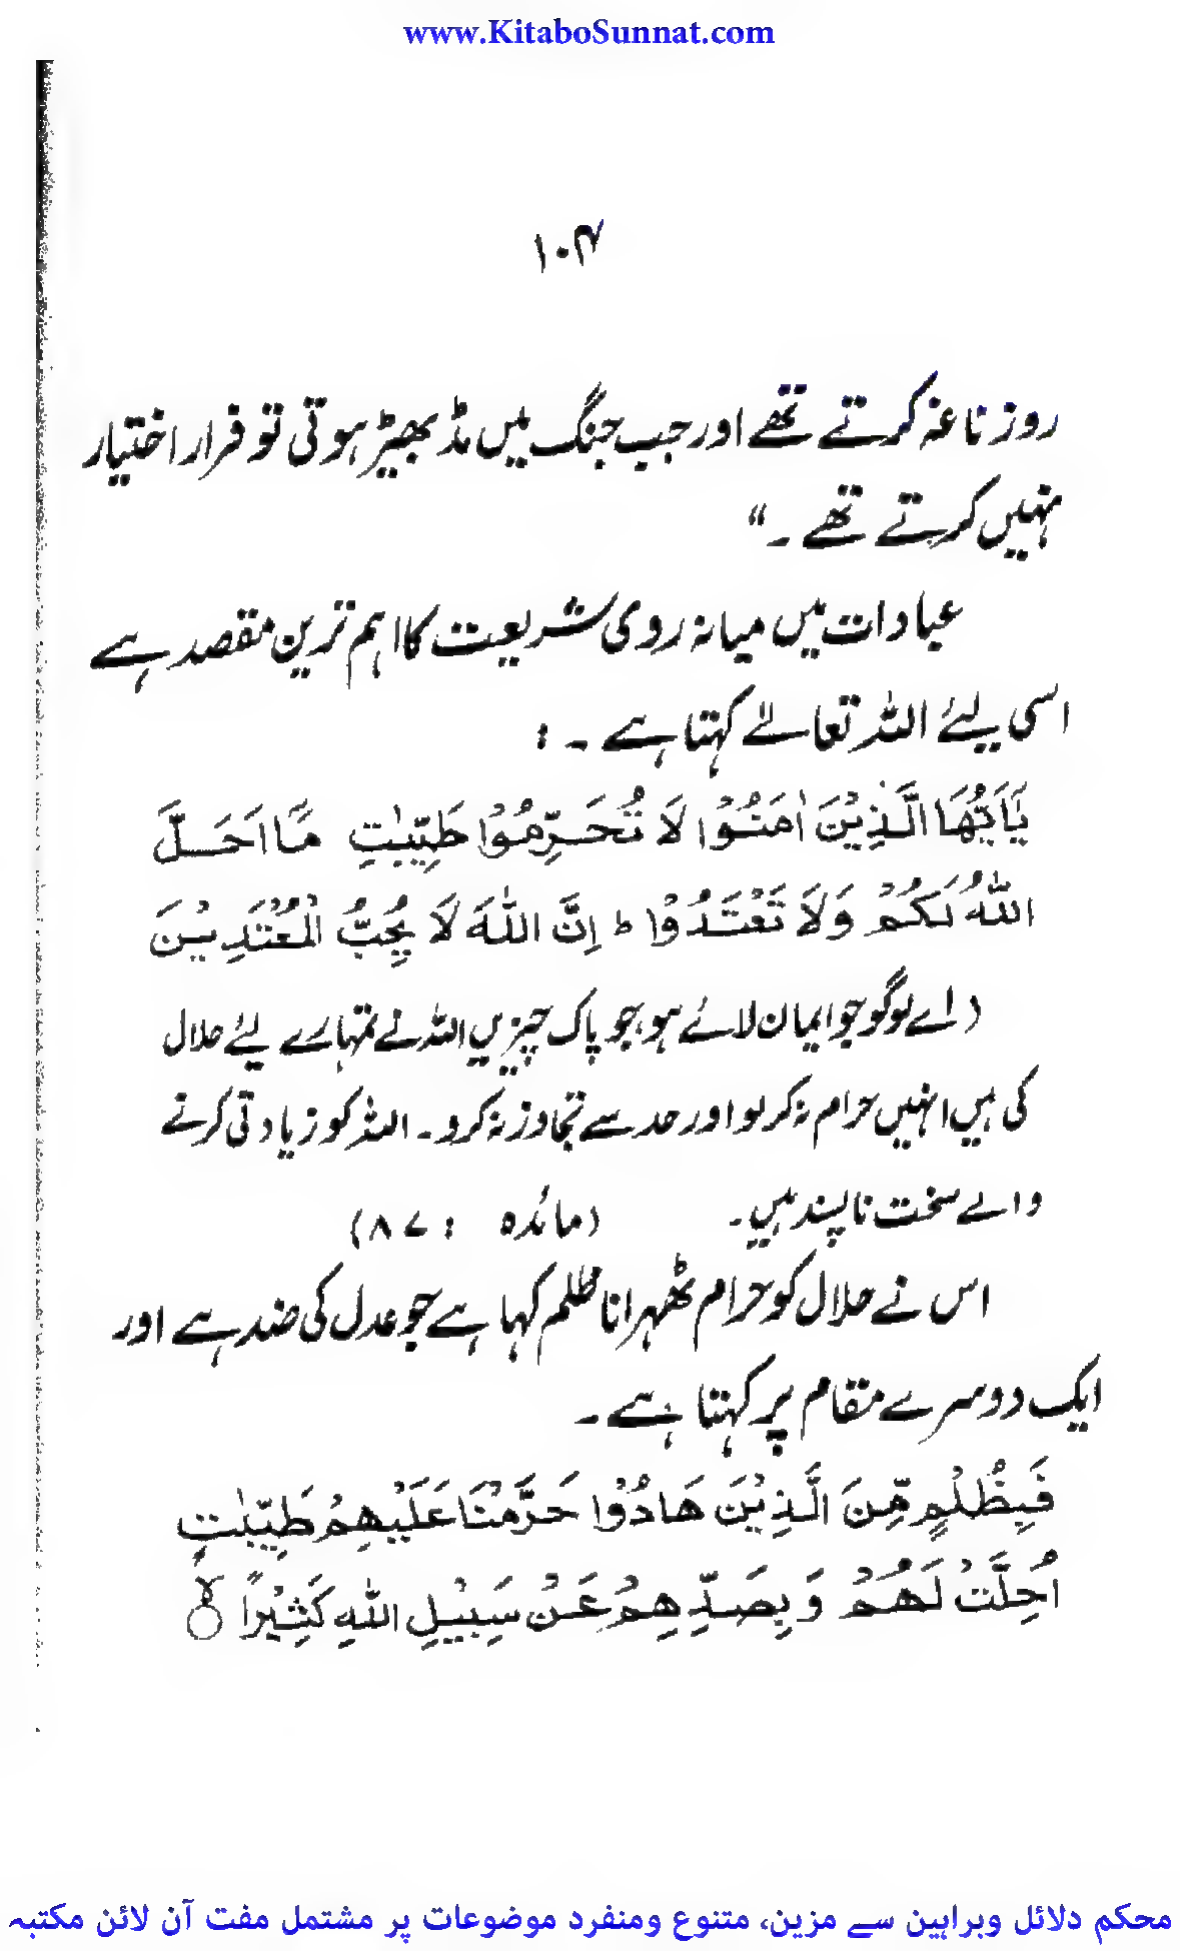 www.KitaboSunnat.com
۱۰۴
روز ناغہ کرتے تھے اور جب جنگ میں مڈ بھیڑ ہوتی تو فرار اختیار
نہیں کرتے تھے ۔“
عبادات میں میانہ روی شریعت کا اہم ترین مقصد ہے
اسی لیئے اللہ تعالےٰ کہتا ہے ۔ :
يٰٓاَيُّهَا الَّذِيْنَ اٰمَنُوْا لَا تُحَرِّمُوْا طَيِّبٰتِ مَآ اَحَلَّ
اللّٰهُ لَكُمْ وَلَا تَعْتَدُوْا ط اِنَّ اللّٰهَ لَا يُحِبُّ الْمُعْتَدِيْنَ
(اے لوگو جو ایمان لائے ہو، جو پاک چیزیں اللہ نے تمہارے لیئے حلال
کی ہیں انہیں حرام نہ کر لو اور حد سے تجاوز نہ کرو ۔ اللہ کو زیادتی کرنے
والے سخت ناپسند ہیں ۔ (مائدہ : ۸۷)
اس نے حلال کو حرام ٹھہرانا ظلم کہا ہے جو عدل کی ضد ہے اور
ایک دوسرے مقام پر کہتا ہے ۔
فَبِظُلْمٍ مِّنَ الَّذِيْنَ هَادُوْا حَرَّمْنَا عَلَيْهِمْ طَيِّبٰتٍ
اُحِلَّتْ لَهُمْ وَبِصَدِّهِمْ عَنْ سَبِيْلِ اللّٰهِ كَثِيْرًا ۙ
محکم دلائل وبراہین سے مزین، متنوع ومنفرد موضوعات پر مشتمل مفت آن لائن مکتبہ